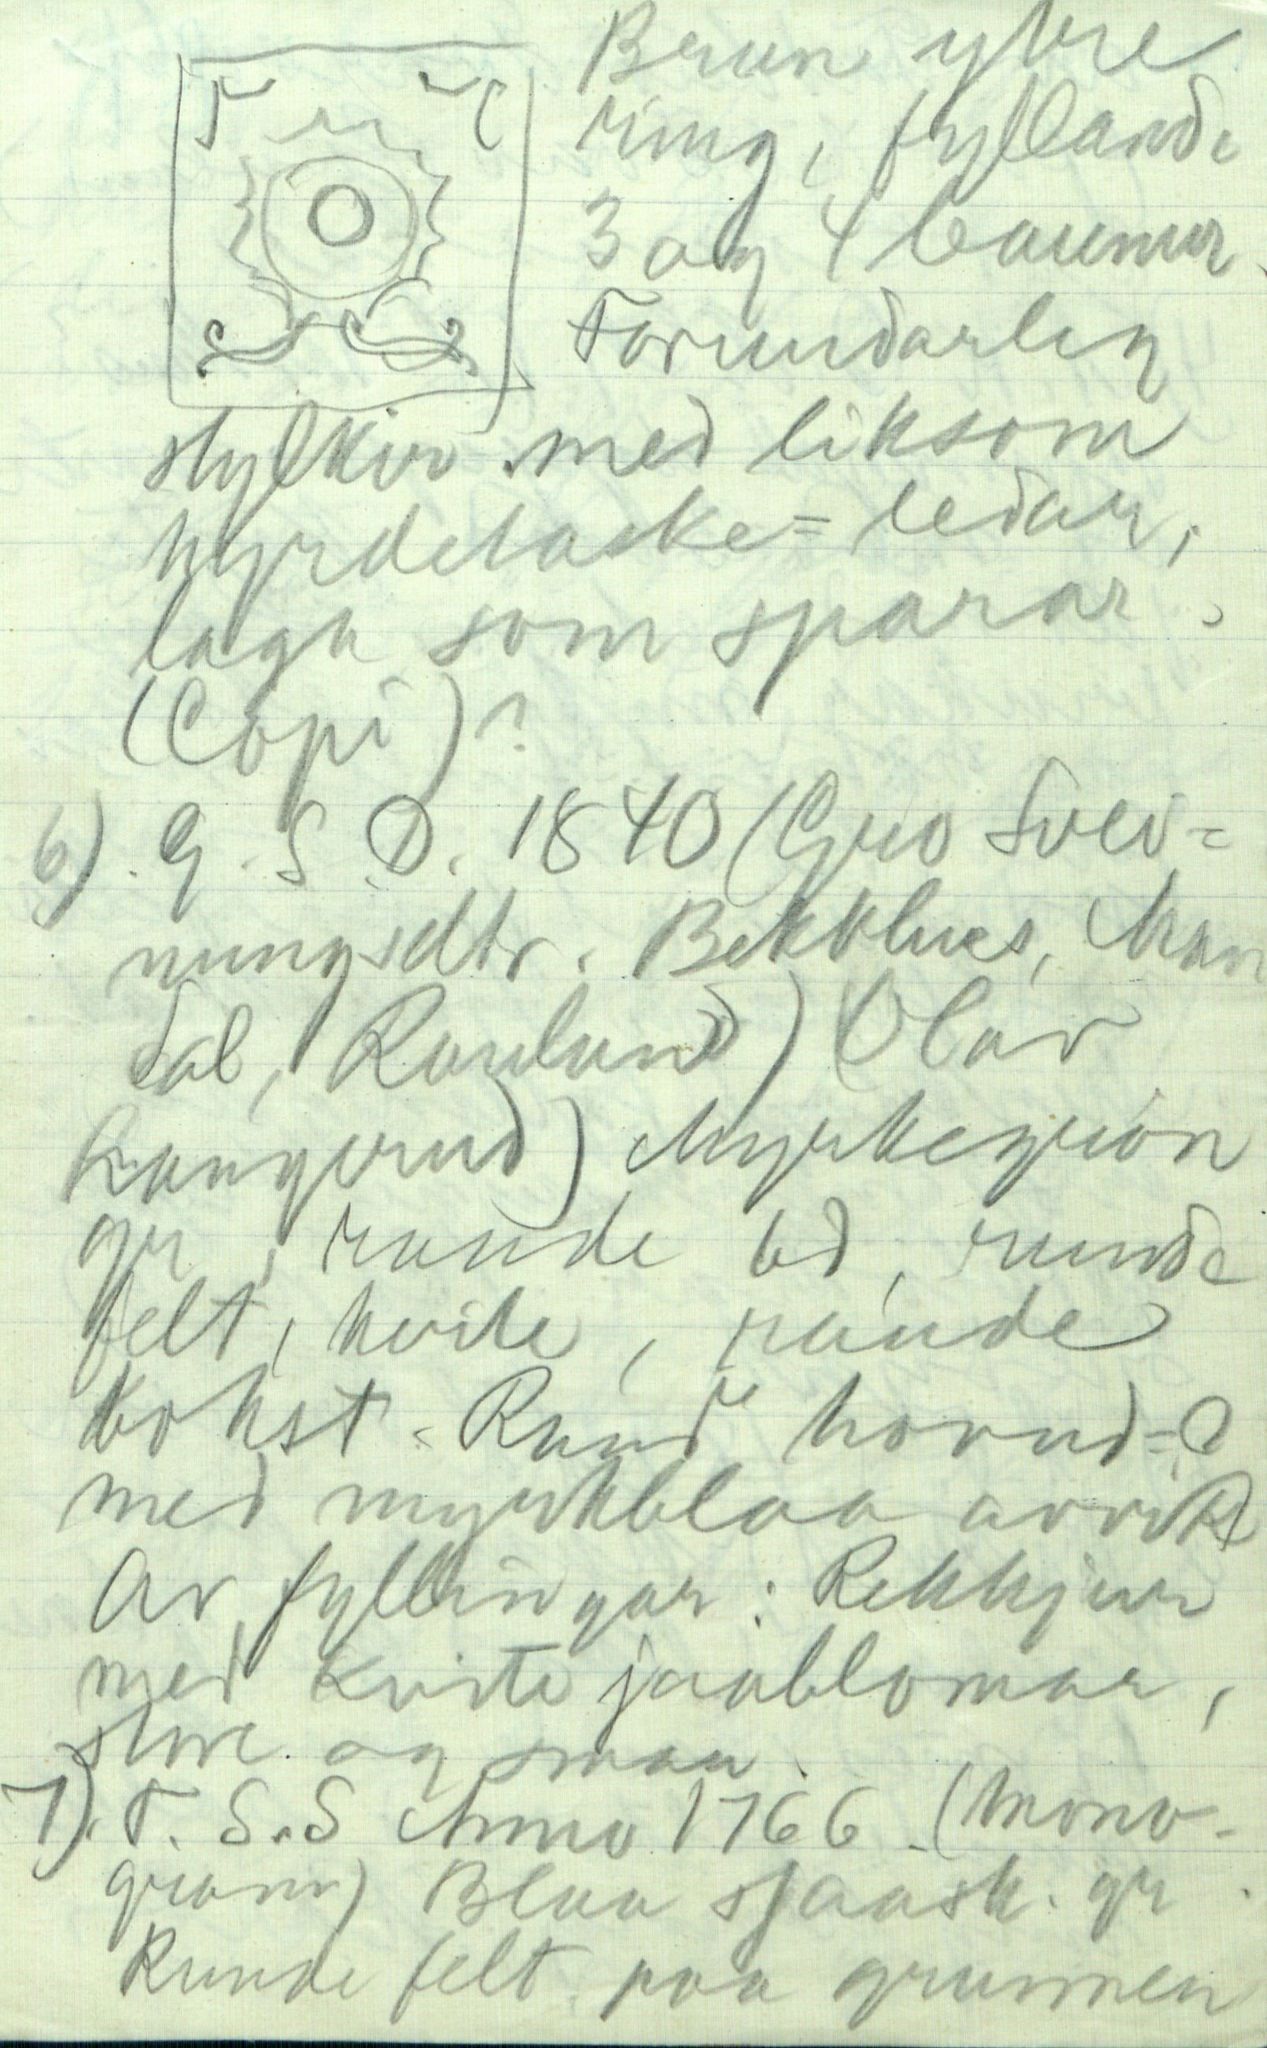 Brun ytre
ring, fyllande
3 og 4 laumur.
Forundarleg
stylkir med liksom
hyrdetaske= ledar,
laga som sparar.
(Copi)?
6). G. S. D. 1840 (Gro Svei=
nungsdtr. Bekkhus, Man
dal, Rauland) Olav
Rangerud) Myrkegrøn
gr, raude bd, runde
felt, kvite, raude
bokst. Raud hovud=
med myrkblaa
Av fyllingar: Rekkjur
med kvite jaablomar,
store og smaa.
7). T. S. S Anno 1766. (Mono-
gram) Blaa sjaask. gr.
Runde felt paa grunnen